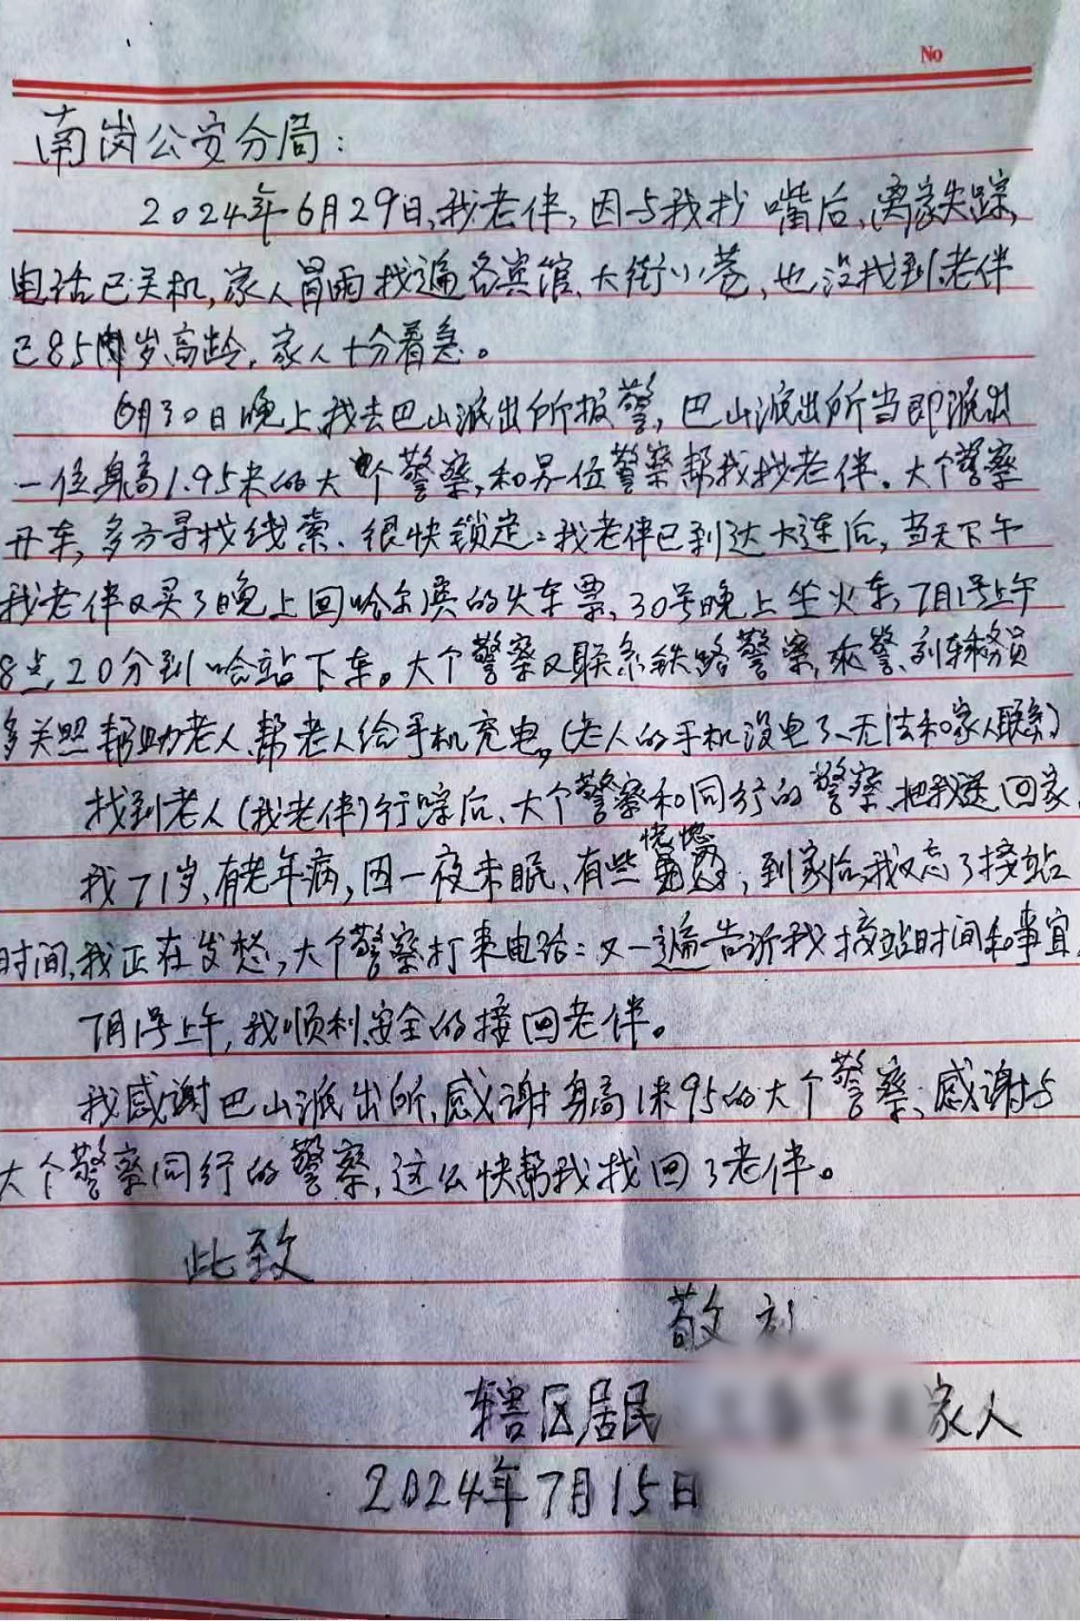 No
南岗公安分局：
2024年6月29日,我老伴,因与我抄嘴后,离家失踪,
电话已关机,家人冒雨找遍各宾馆、大街小巷,也没找到.老伴
已85岁高龄,家人十分着急。
6月30日晚上,我去巴山派出所报警,巴山派出所当即派出
一位身高1.95米的大个警察,和另一位警察帮我找老伴。大个警察
开车,多方寻找线索、很快锁定:我老伴已到达大连后,当天下午
我老伴又买了晚上回哈尔滨的火车票,30号晚上坐火车,7月1号上午
8点20分到哈站下车。大个警察又联系铁路警察,乘警、列车务员
多关照帮助老人、帮老人给手机充电。(老人的手机没电了、无法和家人联系)
找到老人(我老伴)行踪后、大个警察和同行的警察,把我送回家,
我71岁、有老年病,因一夜未眠、有些恍惚,到家后,我又忘了接站
时间,我正在发愁,大个警察打来电话:又一遍告诉我接站时间和事宜.
7月1号上午,我顺利安全的接回老伴。
我感谢巴山派出所,感谢身高1米95的大个警察,感谢与
大个警察同行的警察,这么快帮我找回了老伴。
此致
敬礼
辖区居民 家人
2024年7月15日